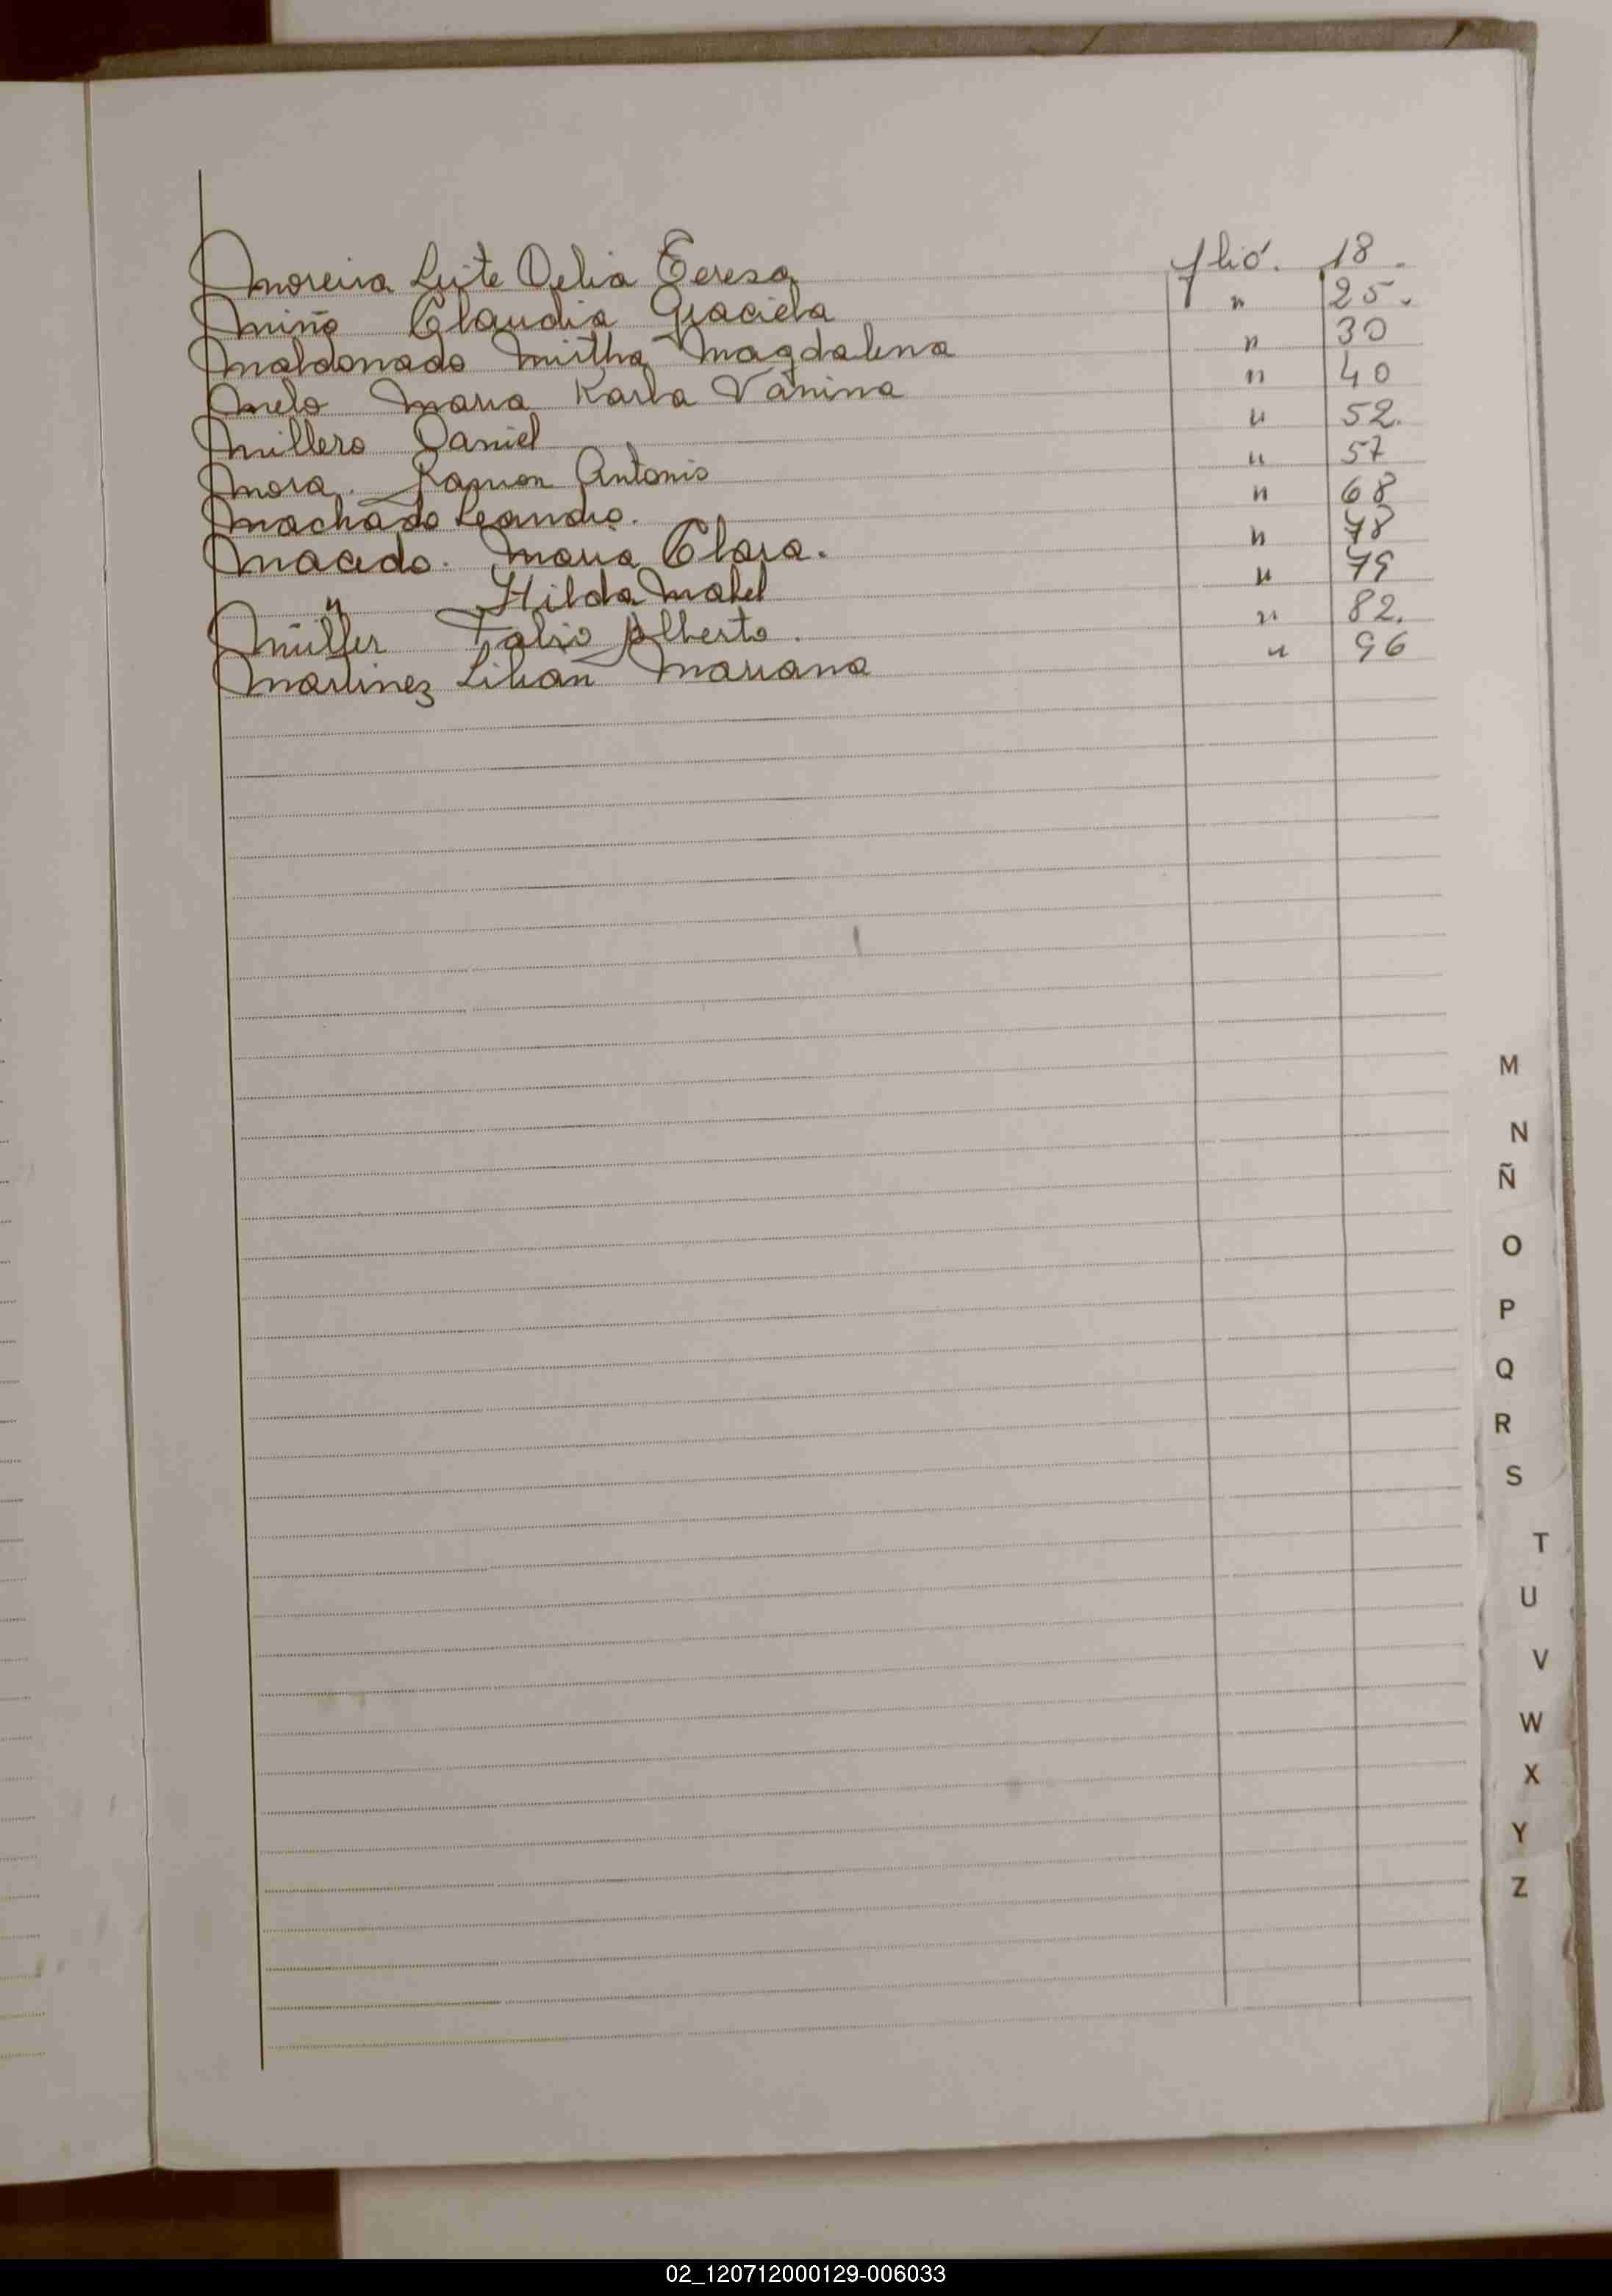 Moreira Leite Delia Teresa flió. 18.
Miño Claudia Graciela " 25.
Maldonado Mirtha Magdalena " 30
Melo Maria Karla Vanina " 40
Millero Daniel " 52.
Mora. Ramon Antonio " 57
Machado Leandro. " 68
Macedo. Maria Clara. " 78
" Hilda Mabel " 79
Müller Fabio Alberto. " 82.
Martinez Lilian Mariana " 96
M
N
Ñ
O
P
Q
R
S
T
U
V
W
X
Y
Z
02_120712000129-006033